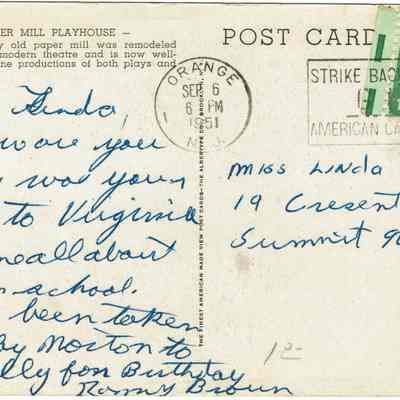 ER MILL PLAYHOUSE —
y old paper mill was remodeled
modern theatre and is now well-
ne productions of both plays and
POST CARD
ORANGE
SEP 6
6 PM
1951
N.J.
STRIKE BAC
AMERICAN CA
THE FINEST AMERICAN MADE VIEW POST CARDS—THE ALBERTYPE CO., BROOKLYN, N.
Linda,
are you
was your
to Virginia
me all about
school.
been taken
by Morton to
lly for Birthday
Ronny Brown
Miss Linda
19 Cresent
Summit 90
1c—